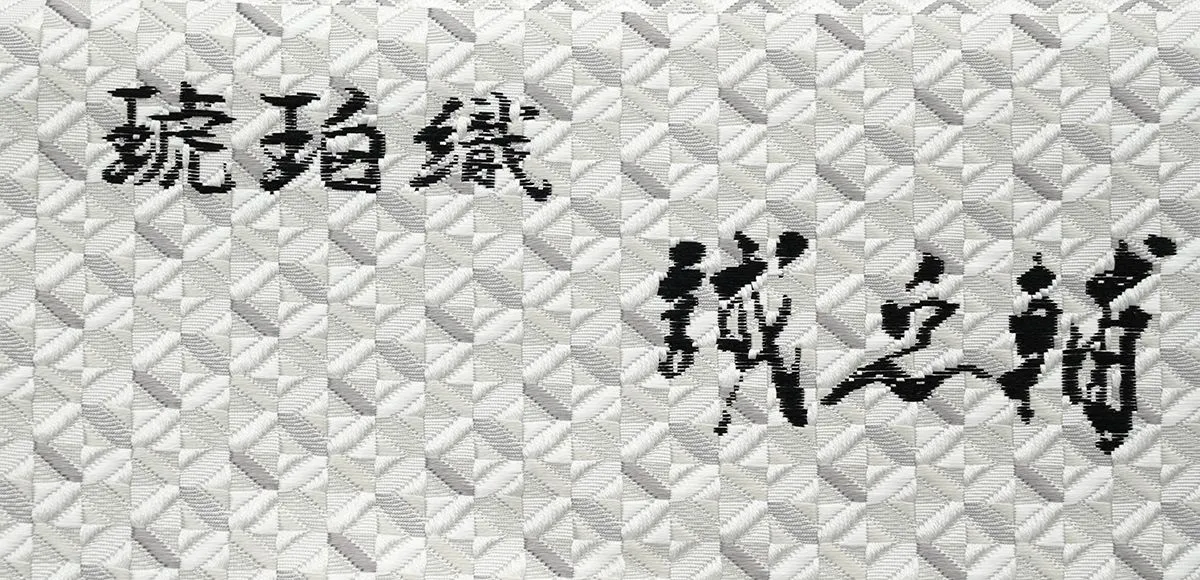 琥珀織
織之輔